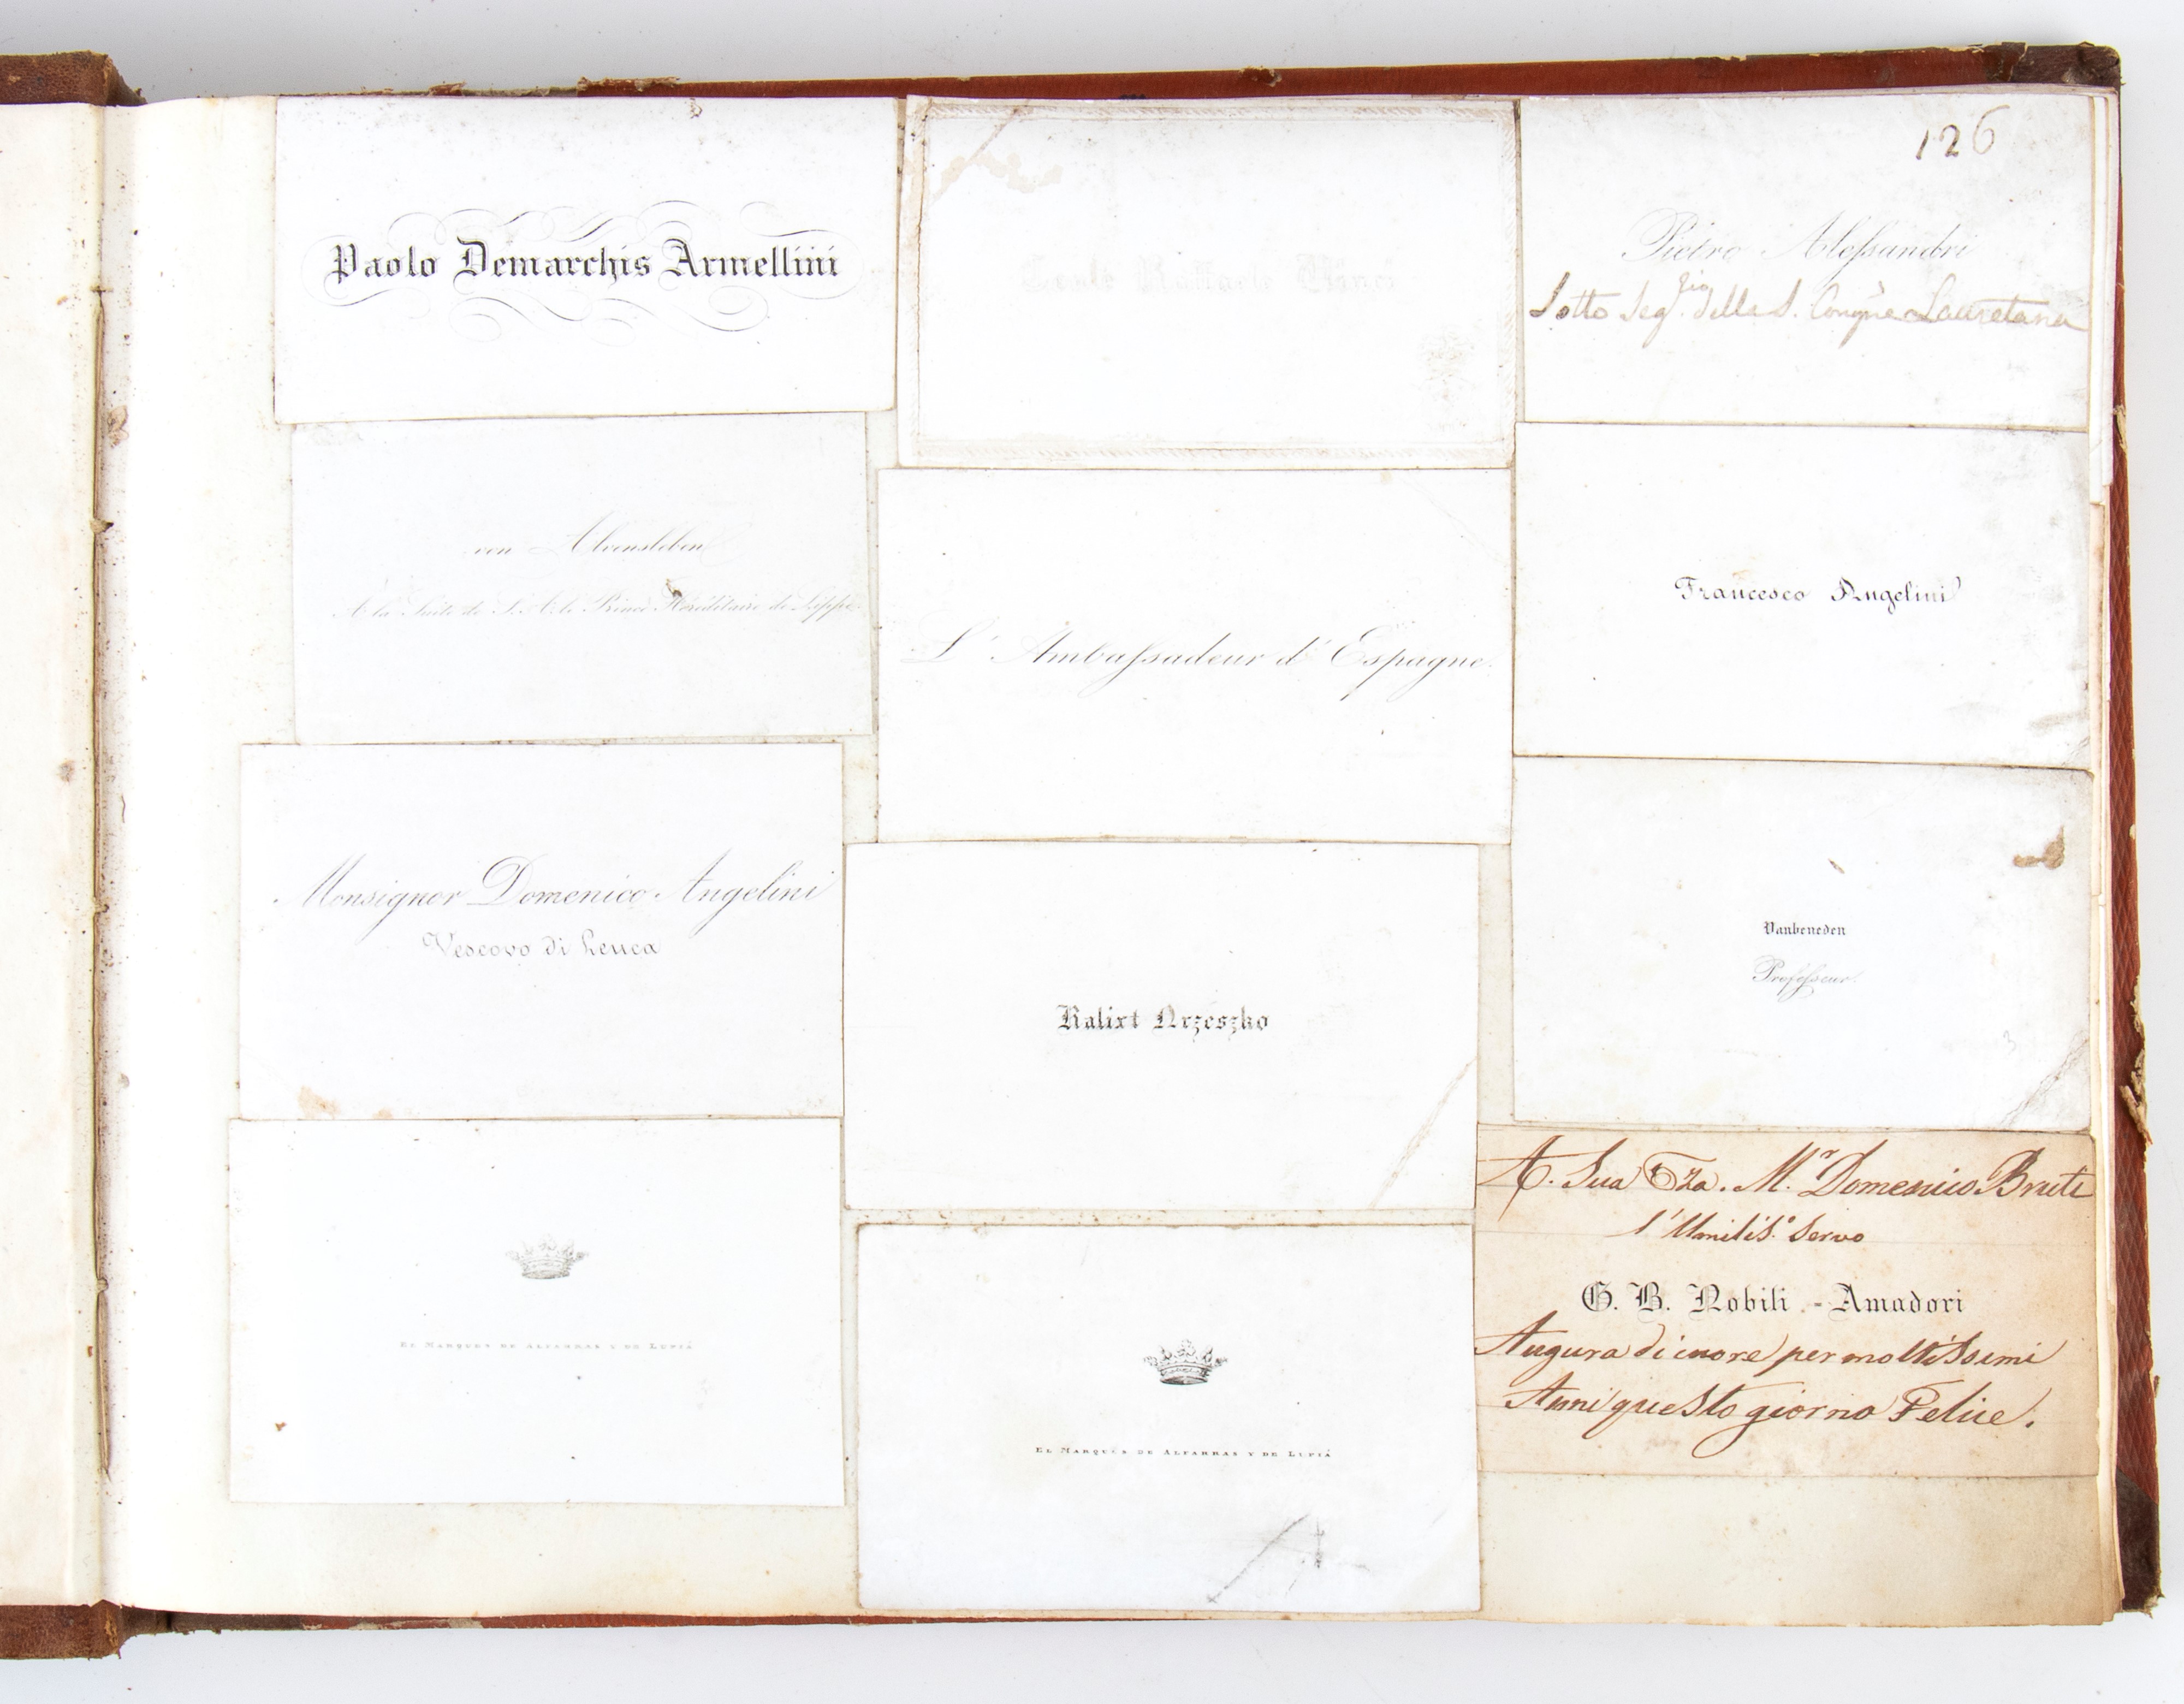 Paolo Demarchis Armellini
von Alvensleben
A la Suite de S. A. le Prince Héréditaire de Lippe.
Monsignor Domenico Angelini
Vescovo di Leuca
El Marques de Alfarras y de Lupiá
Conte Raffaele
L'Ambassadeur d'Espagne.
Kalixt Orzeszko
El Marques de Alfarras y de Lupiá
126
Pietro Alessandri
Sotto Seg.rio della S. Congne Lauretana
Francesco Angelini
Vanbeneden
Professeur.
3
A. Sua Eza. M.r Domenico Bruti
l'Umilis.o Servo
G. B. Nobili - Amadori
Augura di cuore per moltissimi
Anni questo giorno Felice.